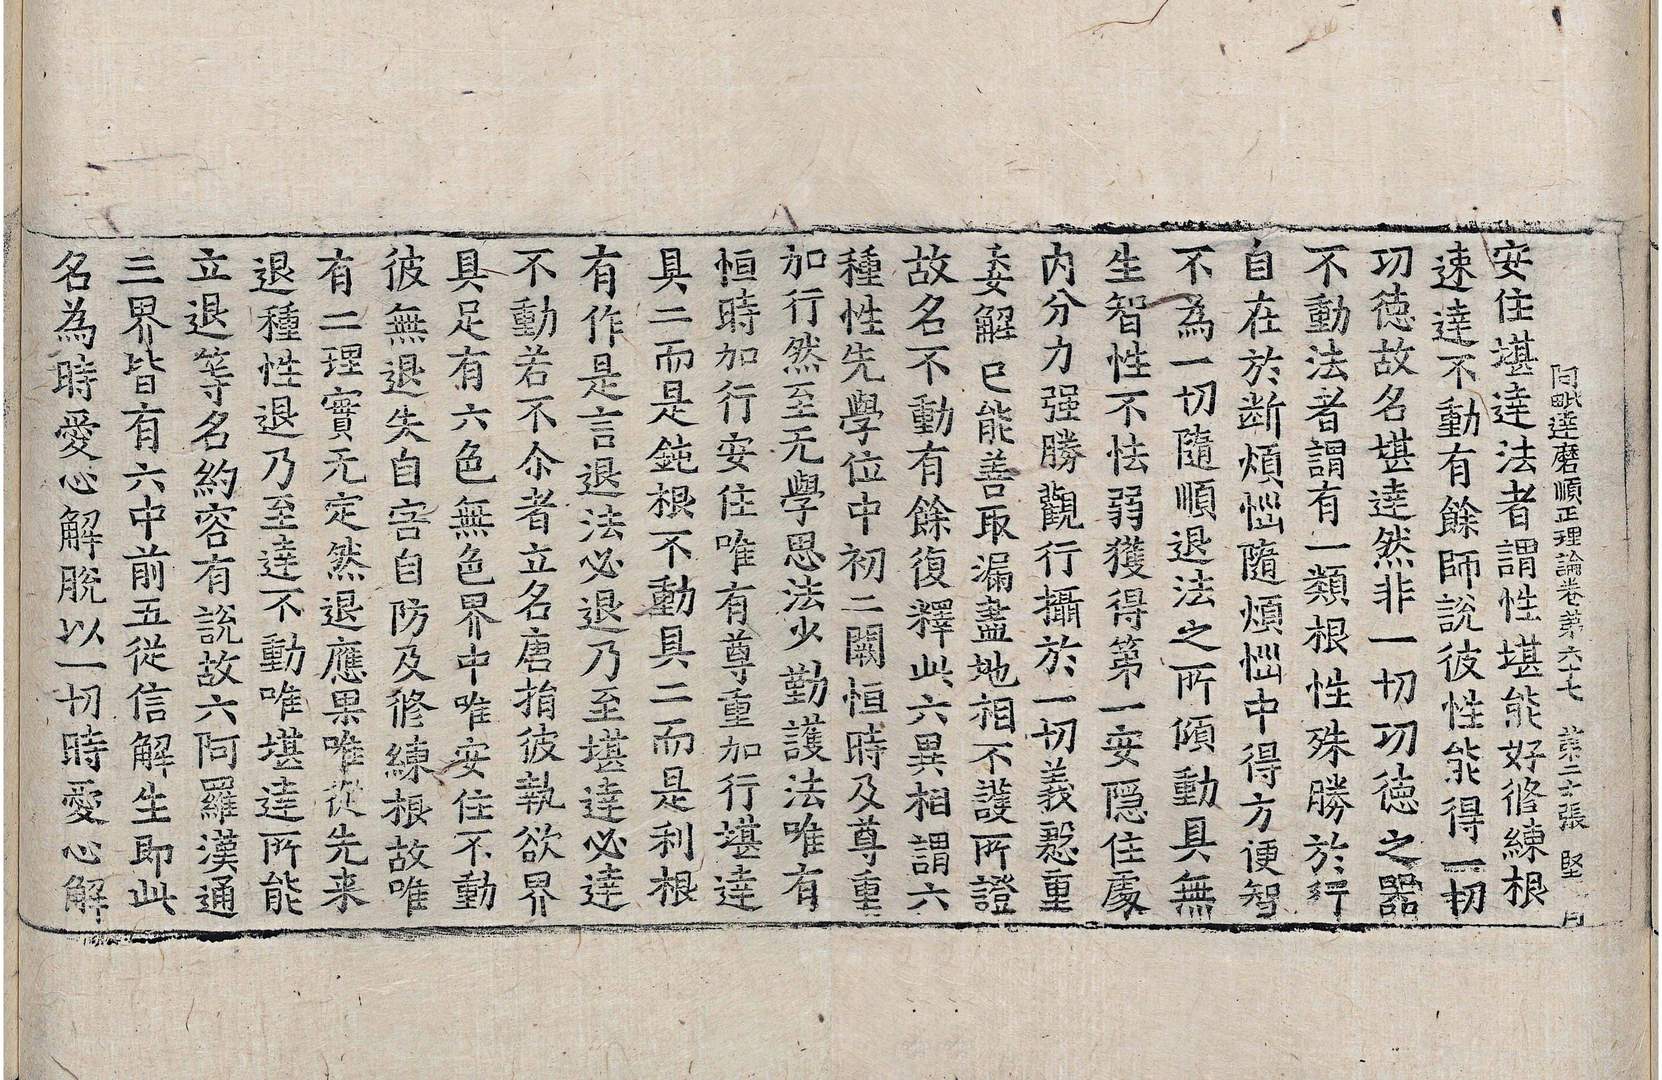 阿毗達磨順正理論卷第六十七 第二十張 堅
安住堪達法者謂性堪能好修練根
速達不動有餘師說彼性能得一切
功徳故名堪達然非一切功徳之器
不動法者謂有一類根性殊勝於行
自在於斷煩惱隨煩惱中得方便智
不為一切隨順退法之所傾動具無
生智性不怯弱獲得第一安隱住處
內分力强勝觀行攝於一切義懇重
委解已能善取漏盡地相不護所證
故名不動有餘復釋此六異相謂六
種性先學位中初二闕恒時及尊重
加行然至无學思法少勤護法唯有
恒時加行安住唯有尊重加行堪達
具二而是鈍根不動具二而是利根
有作是言退法必退乃至堪達必達
不動若不尒者立名唐捐彼執欲界
具足有六色無色界中唯安住不動
彼無退失自害自防及修練根故唯
有二理實无定然退應果唯從先来
退種性退乃至達不動唯堪達所能
立退等名約容有說故六阿羅漢通
三界皆有六中前五從信解生即此
名為時愛心解脫以一切時愛心解